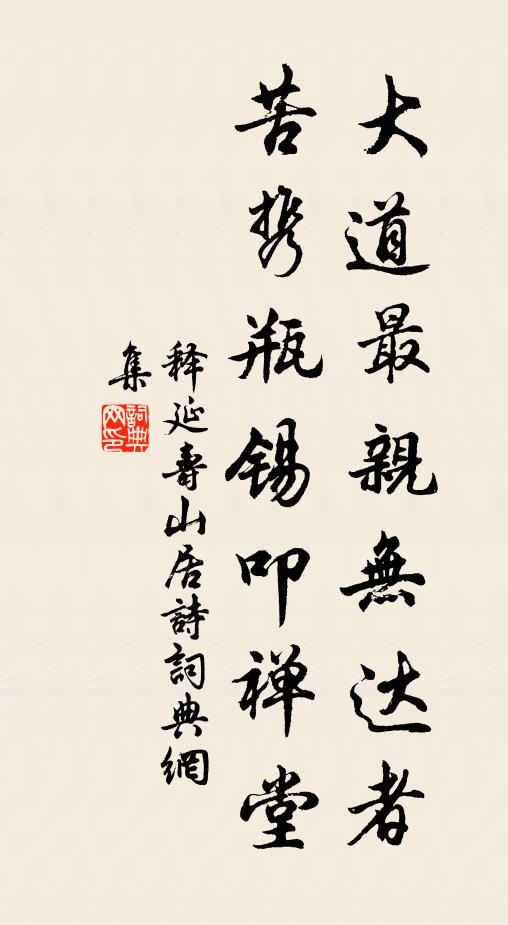 大道最親無达者
苦携瓶锡叩禅堂
释延壽山居詩詞典網
集
詞典网印